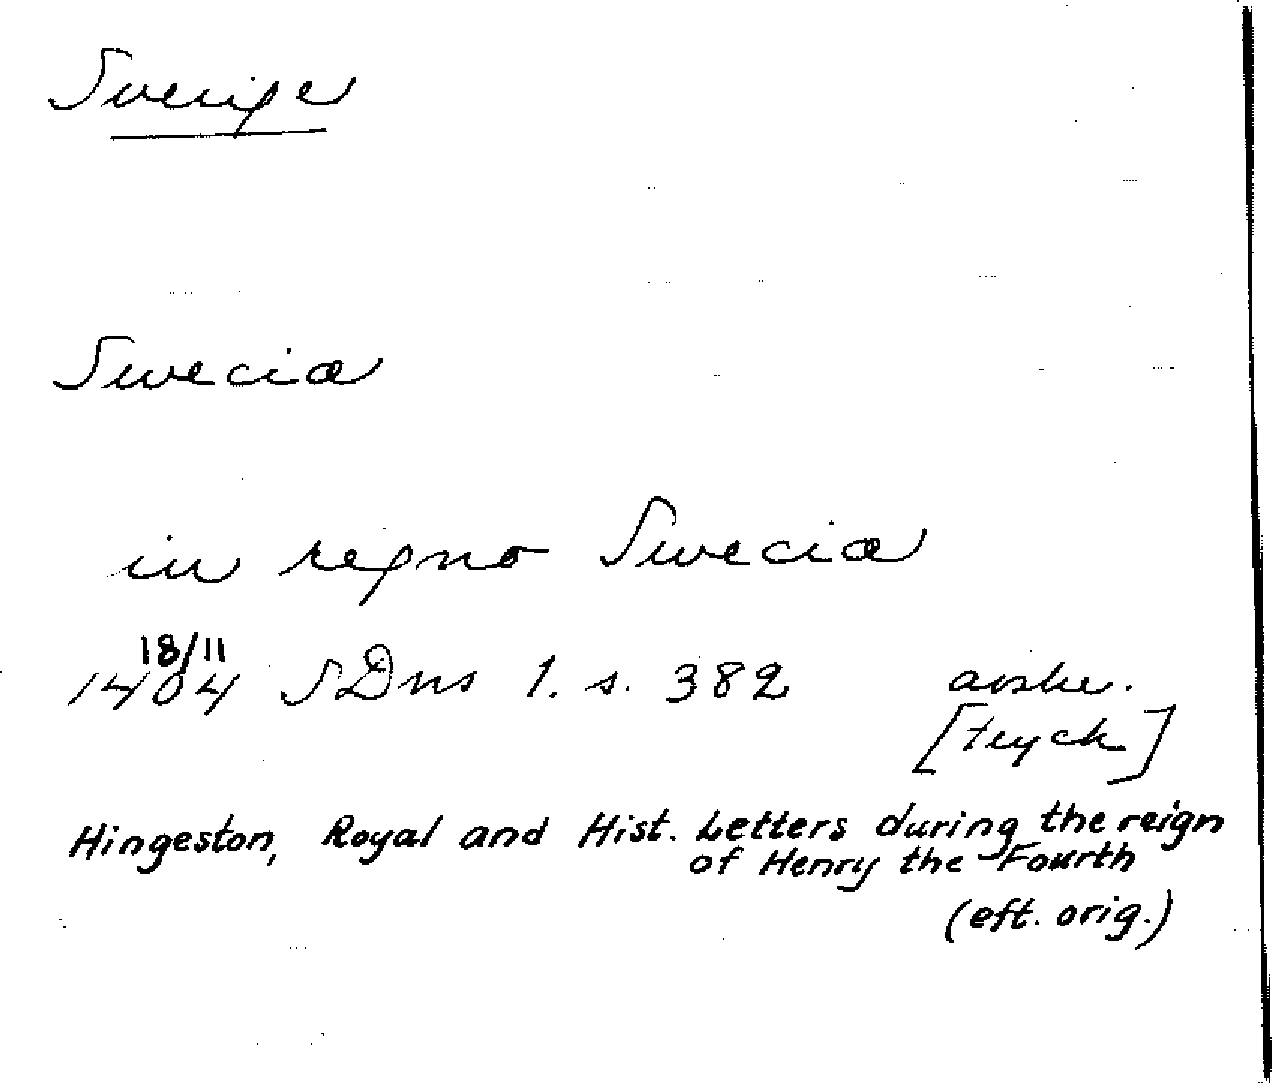 Sverige
Swecia
in regno Swecia
18/11
1404 SDns 1. s. 382 avskr.
[tryck]
Hingeston, Royal and Hist. Letters during the reign
of Henry the Fourth
(eft. orig.)